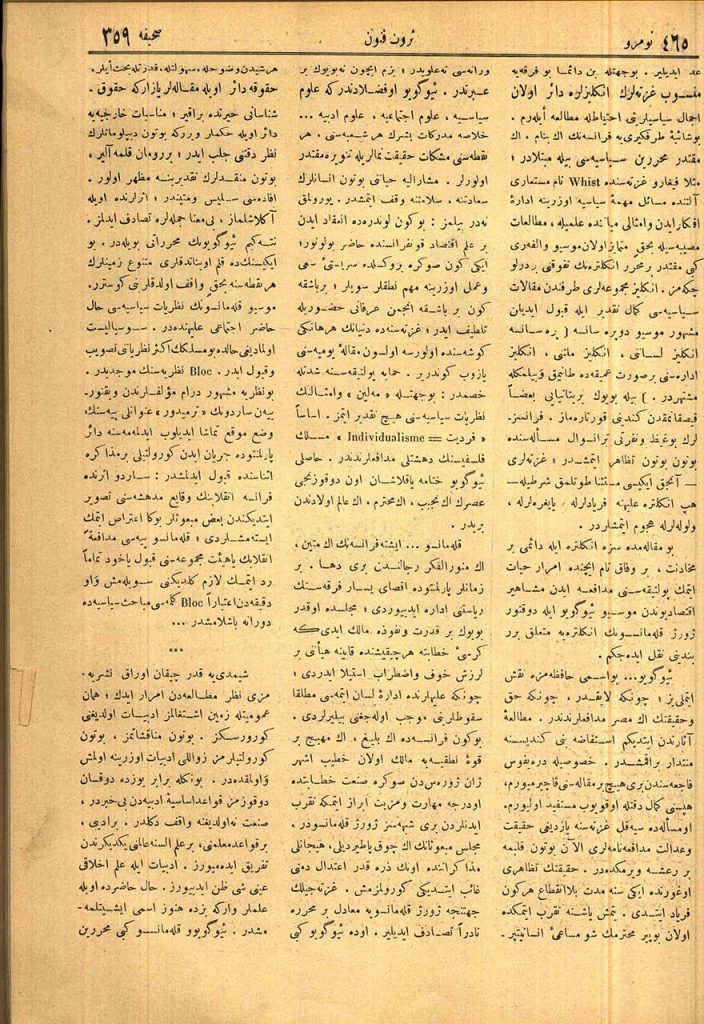 نومرو ٤٦٥
ثروت فنون
صحيفه ٣٥٩
عد ايديلير . بوجهتله بن دائما بو فرقه‌يه
منسوب غزته‌لرك انكليزلره دائر اولان
اجمال سياسياريني احتياطله مطالعه ايله‌رم .
مقتدر محررين سياسيه‌سى بيله مبتلادر ؛
مثلا فيغارو غزته‌سنده Whist نام مستعارى
آلتنده مسائل مهمهٔ سياسيه اوزرينه ادارهٔ
افكار ايدن وامثالى ميانده علميله ، مطالعات
مصيبه‌سيله بحق متمايز اولان موسيو والفره‌ى
كبى مقتدر بر محرر انكلتره‌نك تفوقنى
چكه‌مز . انكليز مجموعه‌لرى طرفندن مقالات
سياسيه‌سى كمال تقدير ايله قبول ايديلن
مشهور موسيو دوپره سانسه ( پره سانسه
انكليز لساننى ، انكليز ملتنى ، انكليز
اداره‌سنى برصورت عميقه‌ده طانيمق وبيلمكله
مشهردر . ) بيله بويوك بريتانيايى بعضاً
قيصقانمقدن كندينى قورتاره‌ماز . فرانسز-
لرك بوغيظ ونفرتى ترانسوال مسأله‌سنده
بوتون بوتون تظاهر ايتمشدر ؛ غزته‌لرى
— آنجق ايكيسى مستثنا طوتلمق شرطيله —
هپ انكلتره عليهنه فريادلرله ، پايغره‌لرله ،
ولوله‌لرله هجوم ايتمشلردر .
بو مقاله‌مده سزه انكلتره ايله دائمى بر
مخادنت ، بر وفاق تام ايچنده امرار حيات
ايتمك پولتيقه‌سنى مدافعه ايدن مشاهير
اقتصاديوندن موسيو ئيوگويو ايله دوقتور
ژورژ قله‌مانسونك انكلتره‌يه متعلق برر
بندينى نقل ايده‌جكم .
ئيوگويو... بواسمى حافظه‌مزه نقش
ايتملى‌يز ؛ چونكه لايقدر ، چونكه حق
وحقيقتك اك مصر مدافعلرندندر . مطالعهٔ
آثارندن ايتديكم استفاضه بنى كنديسنه
منتدار براقمشدر . خصوصيله دره‌يفوس
فاجعه‌سندن برى هيچ بر مقاله‌سنى قاچيرميورم ؛
هپسنى كمال دقتله اوقويوب مستفيد اوليورم .
اومسأله‌ده سيه‌قل غزته‌سنه يازديغى حقيقت
وعدالت مدافعه‌نامه‌لرى الآن بوتون قلبمه
بر رعشه ويرمكده‌در . حقيقتك تظاهرى
اوغورنده ايكى سنه مدت بلاانقطاع هركون
فرياد ايتدى . يتمش ياشنه تقرب ايتمكده
اولان بوپير محترمك شو مساعئ انسانيتپر-
ورانه‌سى نه علويدر ؛ بزم ايچون نه بويوك بر
عبرتدر . ئيوگويو اوفضلادندركه علوم
سياسيه ، علوم اجتماعيه ، علوم ادبيه ...
خلاصه مدركات بشرك هر شعبه‌سنى ، هر
نقطه‌سنى مشكات حقيقت نمالريله تنويره مقتدر
اولورلر . مشاراليه حياتنى بوتون انسانلرك
سعادتنه ، سلامتنه وقف ايتمشدر . يورولق
نه‌در بيلمز ؛ بوكون لوندره‌ده انعقاد ايدن
بر علم اقتصاد قونفرانسنده حاضر بولونور ؛
ايكى كون صوكره بروكسلده سربستئ سعى
وعمل اوزرينه مهم نطقلر سويلر ؛ برباشقه
كون بر باشقه انجمن عرفانى حضوريله
تلطيف ايدر ؛ غزته‌سنده دنيانك هرهانكى
كوشه‌سنده اولورسه اولسون مقالهٔ يوميه‌سنى
يازوب كوندرير . حمايه پولتيقه‌سنه شدتله
خصمدر : بوجهتله « مه‌لين » وامثالنك
نظريات سياسيه‌سنى هيچ تقدير ايتمز . اساساً
« فرديت = Individualisme » مسلك
فلسفيسنك دهشتلى مدافعلرندندر . حاصلى
ئيوگويو ختامه ياقلاشان اون دوقوزنجى
عصرك اك نجيب ، اك محترم ، اك عالم اولادندن
بريدر .
قله‌مانسو ... ايشته فرانسه‌نك اك متين ،
اك منورالفكر رجالندن برى دها . بر
زمانلر پارلمنتوده اقصاى يسار فرقه‌سنك
رياستنى اداره ايديوردى ؛ مجلسده اوقدر
بويوك بر قدرت ونفوذه مالك ايدى كه
كرسئ خطابته هرچيقيشنده قابينه هيأتنى بر
لرزش خوف واضطراب استيلا ايدردى ؛
چونكه عليهلرنده ادارهٔ لسان ايتمسى مطلقا
سقوطلرينى موجب اوله‌جغنى بيليرلردى .
بوكون فرانسه‌ده اك بليغ ، اك مهيج بر
قوهٔ نطقيه‌يه مالك اولان خطيب اشهر
ژان ژوره‌س‌دن صوكره صنعت خطابتده
اودرجه مهارت ومزيت ابراز ايتمكه تقرب
ايدنلردن برى شبهه‌سز ژورژ قله‌مانسودر .
مجلس مبعوثانك اك چوق پاطيرديلى ، هيجانلى
مذاكراتنده اونك ذره قدر اعتدال دمنى
غائب ايتديكى كورولمزمش . غزته‌جيلك
جهتنجه ژورژ قله‌مانسويه معادل بر محرره
نادراً تصادف ايديلير . اوده ئيوگويو كبى
هرشيدن وضوحله ، سهولتله ، قدرتله بحث ايلر .
حقوقه دائر اويله مقاله‌لر يازاركه حقوق-
شناسانى حيرتده براقير ؛ مناسبات خارجيه‌يه
دائر اويله حكملر ويرركه بوتون ديپلوماتلرك
نظر دقتنى جلب ايدر ؛ بررومان قلمه آلير ،
بوتون منقدلرك تقديرينه مظهر اولور .
افاده‌سى سليس ومتيندر ؛ اثرلرنده اويله
آكلاشلماز ، بى‌معنا جمله‌لره تصادف ايدلمز .
نته‌كيم ئيوگويونك محرراتى بويله‌در . بو
ايكيسنك‌ده قلم اويناتدقلرى متنوع زمينلرك
هر نقطه‌سنه بحق واقف اولدقلرينى كوسترر .
موسيو قله‌مانسونك نظريات سياسيه‌سى حال
حاضر اجتماعى عليهنده‌در . سوسياليست
اولماديغى حالده بومسلكك اكثر نظرياتنى تصويب
وقبول ايدر . Bloc نظريه‌سنك موجديدر .
بونظريه مشهور درام مؤلفلرندن ويقتور-
يه‌ن ساردونك « ترميدور » عنوانلى پيه‌سنك
وضع موقع تماشا ايديلوب ايدلمه‌مسنه دائر
پارلمنتوده جريان ايدن كورولتيلى بر مذاكره
اثناسنده قبول ايدلمشدر : ساردو اثرنده
فرانسه انقلابنك وقايع مدهشه‌سنى تصوير
ايتديكندن بعض مبعوثلر بوكا اعتراض ايتمك
ايسته‌مشلردى ؛ قله‌مانسو پيه‌سى مدافعةً
انقلابك ياهيئت مجموعه‌سنى قبول ياخود تماماً
رد ايتمك لازم كلديكنى سويله‌مش واو
دقيقه‌دن اعتباراً Bloc كلمه‌سى مباحث سياسيه‌ده
دورانه باشلامشدر ...
***
شيمدى‌يه قدر چيقان اوراق نشريه-
مزى نظر مطالعه‌دن امرار ايدك ؛ همان
عموميتله زمين اشتغالمز ادبيات اولديغنى
كورورسكز . بوتون مناقشاتمز ، بوتون
قرولتيلرمز زواللى ادبيات اوزرينه اولمش
واولمقده‌در . بونكله برابر يوزده دوقسان
دوقوزمز قواعد اساسيهٔ ادبيه‌دن بى‌خبردر ،
صنعت نه اولديغنه واقف دكلدر . برادبى ،
برقواعد معلمنى ، برعلم السنه عالمنى يكديكرندن
تفريق ايده‌ميورز . ادبيات ايله علم اخلاقى
عينى شى ظن ايدييورز . حال حاضرده اويله
علملر واركه بزده هنوز اسمى ايشيتلمه-
مشدر . ئيوگويو و قله‌مانسو كبى محررين